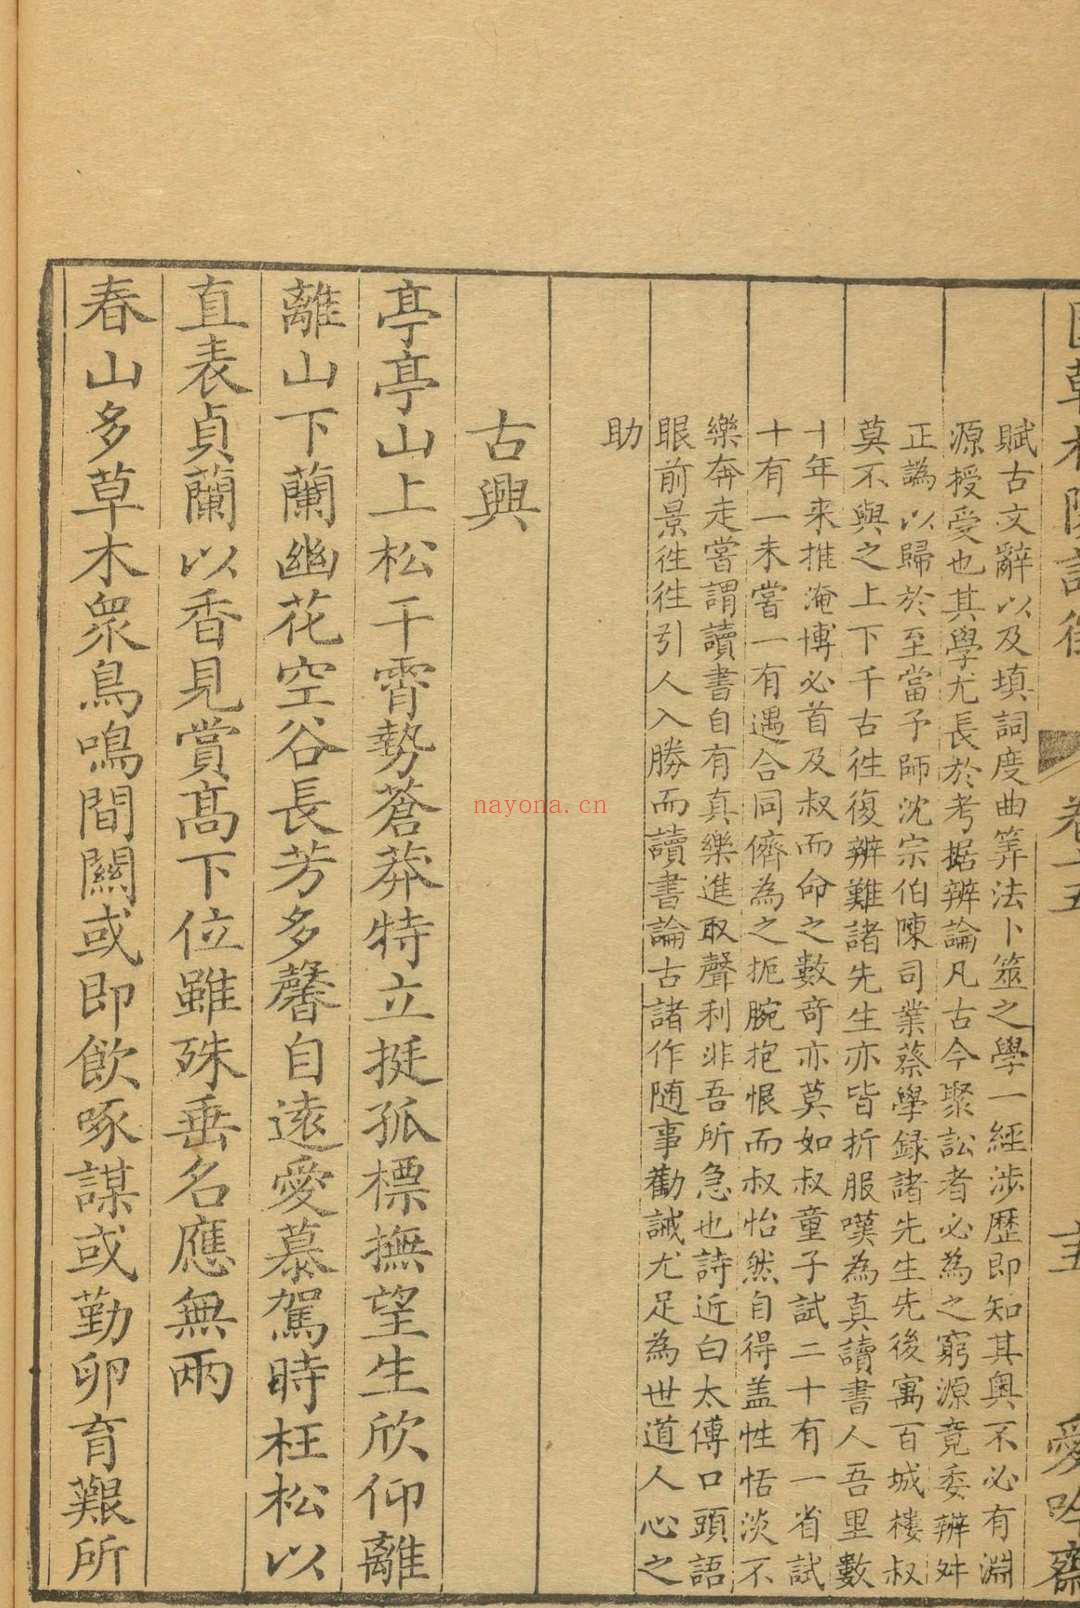 賦古文辭以及填詞度曲筭法卜筮之學一經涉歷即知其奧不必有淵
源授受也其學尤長於考据辨論凡古今聚訟者必為之窮源竟委辨舛
正譌以歸於至當予師沈宗伯陳司業蔡學録諸先生先後寓百城樓叔
莫不與之上下千古徃復辨難諸先生亦皆折服嘆為真讀書人吾里數
十年来推淹博必首及叔而命之數奇亦莫如叔童子試二十有一省試
十有一未嘗一有遇合同儕為之扼腕抱恨而叔怡然自得盖性恬淡不
樂奔走嘗謂讀書自有真樂進取聲利非吾所急也詩近白太傅口頭語
眼前景徃徃引人入勝而讀書論古諸作随事勸誡尤足為世道人心之
助
古興
亭亭山上松干霄勢蒼莽特立挺孤標撫望生欣仰離
離山下蘭幽花空谷長芳多馨自遠愛慕駕時枉松以
直表貞蘭以香見賞髙下位雖殊垂名應無兩
春山多草木眾鳥鳴間關或即飲啄謀或勤卵育艱所
卷十五
愛吟齋
nayona.cn